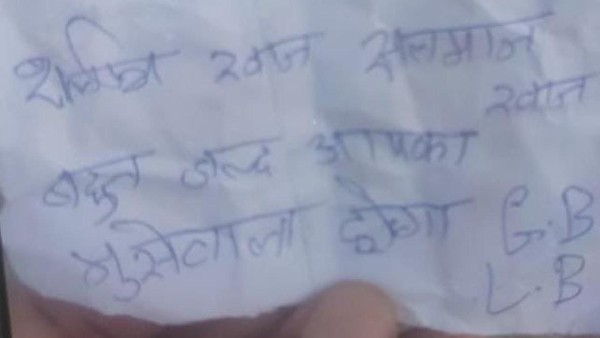 सलीम खान सलमान
खान
बहुत जल्द आपका
मुसेवाला होगा G.B
L.B